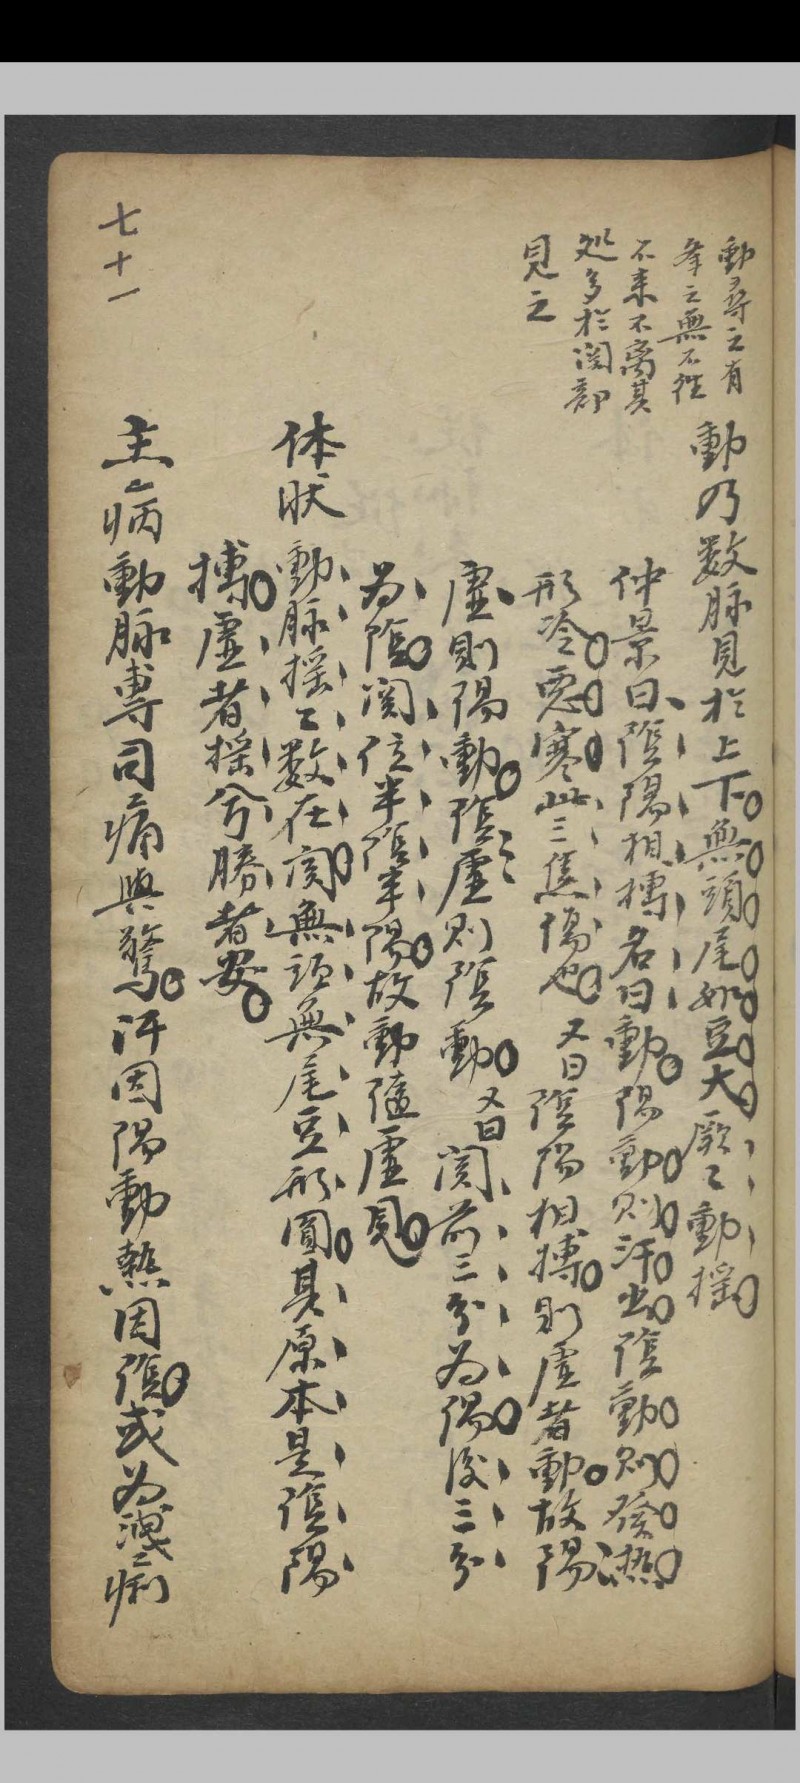 動尋之有
奉之無不往
不来不离其
処多於関部
見之
動乃数脉見於上下無頭尾如豆大厥〻動揺
仲景曰陰陽相搏名曰動陽動則汗出陰動則發热
形冷惡寒此三焦傷也又曰陰陽相搏則虚者動故陽
虚則陽動陰虚則陰動又曰関前三分为陽後三分
为陰関位半陰半陽故動隨虚見
体状動脉揺〻数在関無頭無尾豆形圓其原本是陰陽
搏虚者揺兮勝者安
主病動脉專司痛與驚汗因陽動熱因陰或为洩痢
七十一